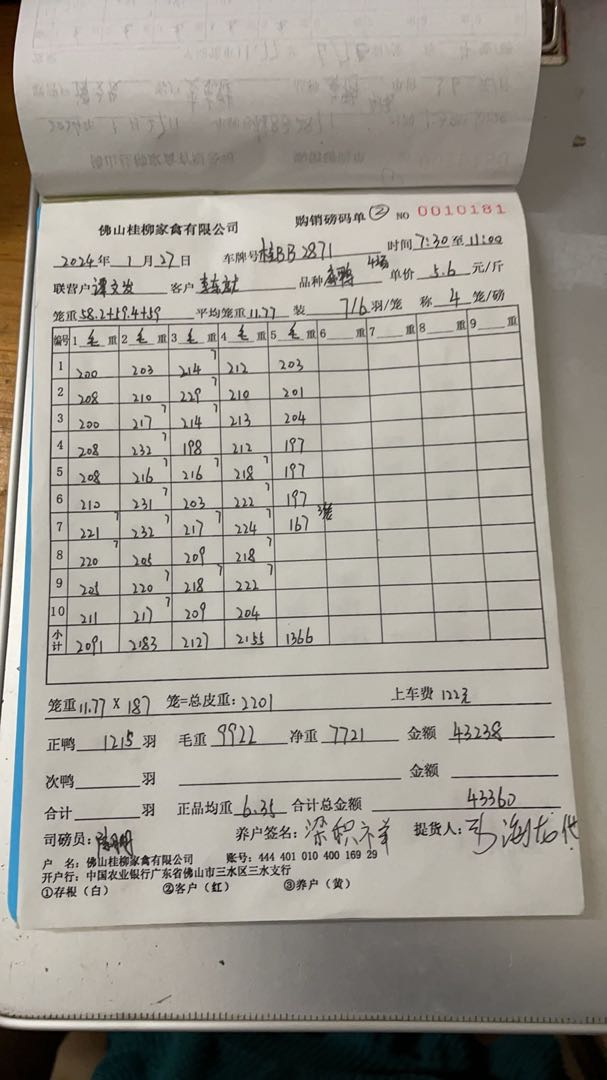 佛山桂柳家禽有限公司 购销磅码单② NO 0010181
2024年 1月27日 车牌号 桂BB2871 时间 7:30至11:00
联营户 谭文发 客户 品种 单价 5.6 元/斤
笼重 58.2+59.4+59 平均笼重 11.77 装 7/6 羽/笼 称 4 笼/磅
编号 1 毛 重 2 毛 重 3 毛 重 4 毛 重 5 毛 重 6 重 7 重 8 重 9 重
1 200 203 214 7 212 203
2 208 210 229 7 210 201
3 200 217 7 214 7 213 204
4 208 232 7 198 212 197
5 208 216 7 216 7 218 7 197
6 210 231 7 203 222 7 197
7 221 7 232 7 217 7 224 7 167 3笼
8 220 7 205 209 218 7
9 205 220 7 218 7 222 7
10 211 217 7 209 204
小计 2091 2183 2127 2155 1366
笼重 11.77 X 187 笼=总皮重: 2201 上车费 122元
正鸭 1215 羽 毛重 9922 净重 7721 金额 43238
次鸭 羽 金额
合计 羽 正品均重 6.35 合计总金额 43360
司磅员: 养户签名: 梁积祥 提货人:
户 名: 佛山桂柳家禽有限公司 账号: 444 401 010 400 169 29
开户行: 中国农业银行广东省佛山市三水区三水支行
①存根（白） ②客户（红） ③养户（黄）